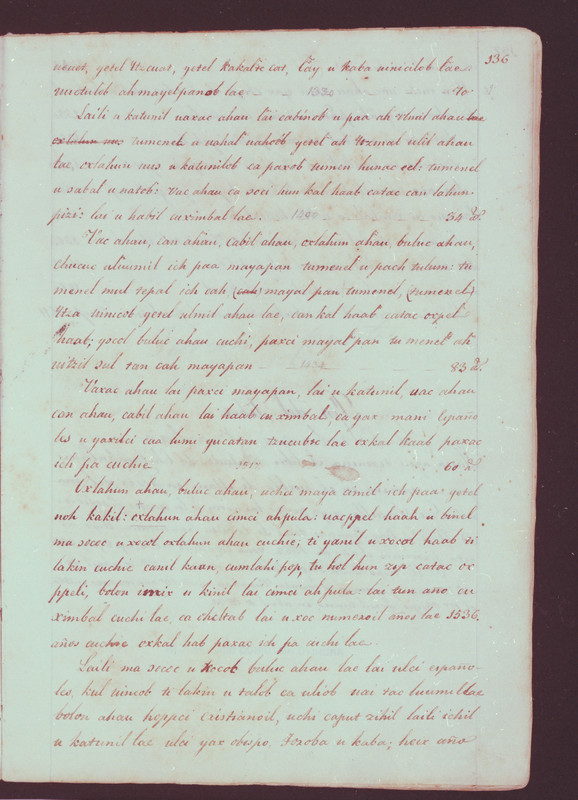 136
neuet, yetel Ytzcuat, yetel Kakaltecat, lay u Kaba uinicilob lae
uuctulob ahmayelpanob lae 1330 70
Laili u katunil uaxac ahau lai cabinob u paa ah Ulmil ahau lae
oxlahun uus tumenel u uahal uahoob yetel ah Ytzmal ulil ahau
lae, oxlahun uus u katunilob ca paxob tumen hunac eel: tumenel
u sabal u natob: Vac ahau ca soci hun kal haab catac can lahun
pizi: lai u habil cuximbal lae. 34 as.
Vac ahau, can ahau, cabil ahau, oxlahun ahau, buluc ahau,
chucuc uluumil ich paa mayapan tumenel u pach tulum: tu
menel mul tepal ich cah (cah) mayal pan tumenel, (tumenel)
Ytza uinicob yetel ulmil ahau lae, can kal haab catac oxpel
haab; yocol buluc ahau cuchi, paxci mayal pan tu menel ah
uitzil sul tan cah mayapan 83 as.
Vaxac ahau lai paxci mayapan, lai u katunil, uac ahau
can ahau, cabil ahau lai haab cuximbal, ca yax mani Españo
les u yaxilci caa lumi yucatan tzucubte lae oxkal haab paxac
ich pa cuchie 60 as.
Oxlahun ahau, buluc ahau, uchci maya cimil ich paa yetel
noh kakil: oxlahun ahau cimci ahpula: uacppel haab u binel
ma sococ u xocol oxlahun ahau cuchie; ti yanil u xocol haab ti
lakin cuchie canil kaan, cumlahi pop, tu hol hun zip catac ox
ppeli, bolon imix u kinil lai cimci ahpula: lai tun año cu
ximbal cuchi lae, ca oheltab lai u xoc numeroil años lae 1536,
años cuchie oxkal hab paxac ich pa cuchi lae.
Laili ma sococ u xocol buluc ahau lae lai ulci españo-
les, kul uincob ti lakin u talob ca uliob uai tac luumil lae
bolon ahau hoppci cristianoil, uchi caput zihil laili ichil
u katunil lae ulci yax obispo, Toroba u kaba; heix año